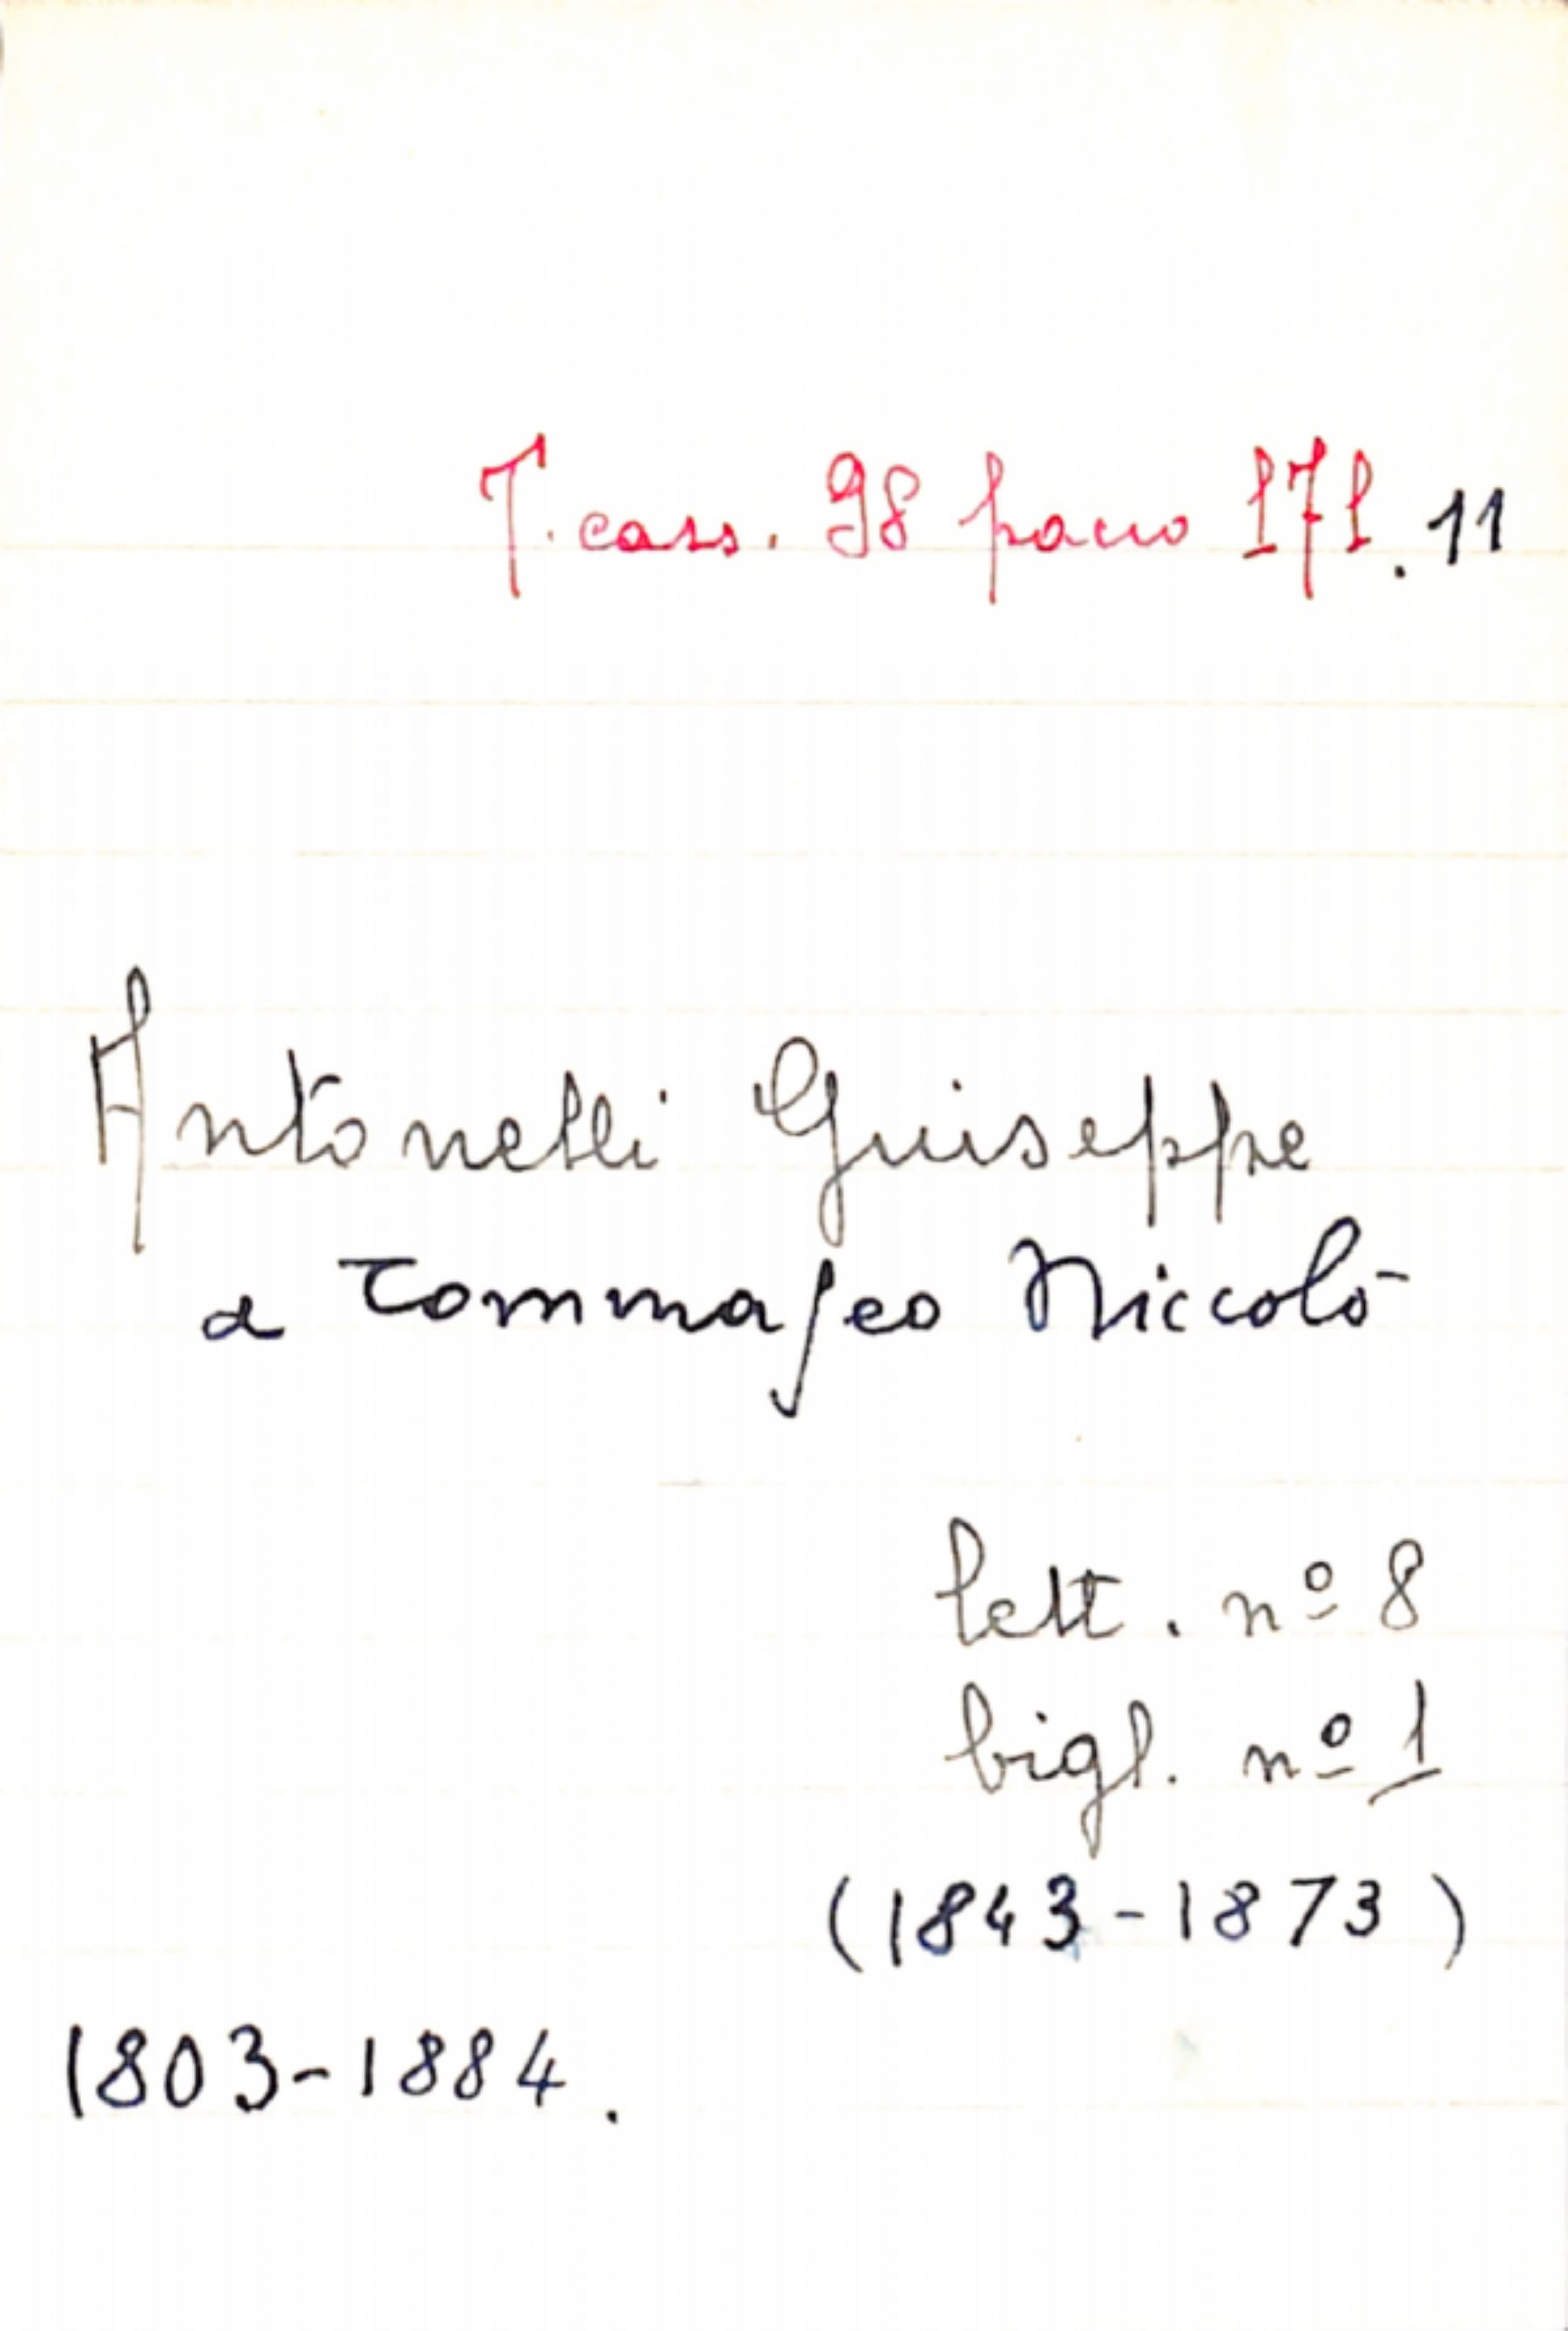 T. cass. 98 pacco 171. 11
Antonelli Giuseppe
a Tommaseo Niccolò
lett. nº 8
bigl. nº 1
(1843-1873)
1803-1884.